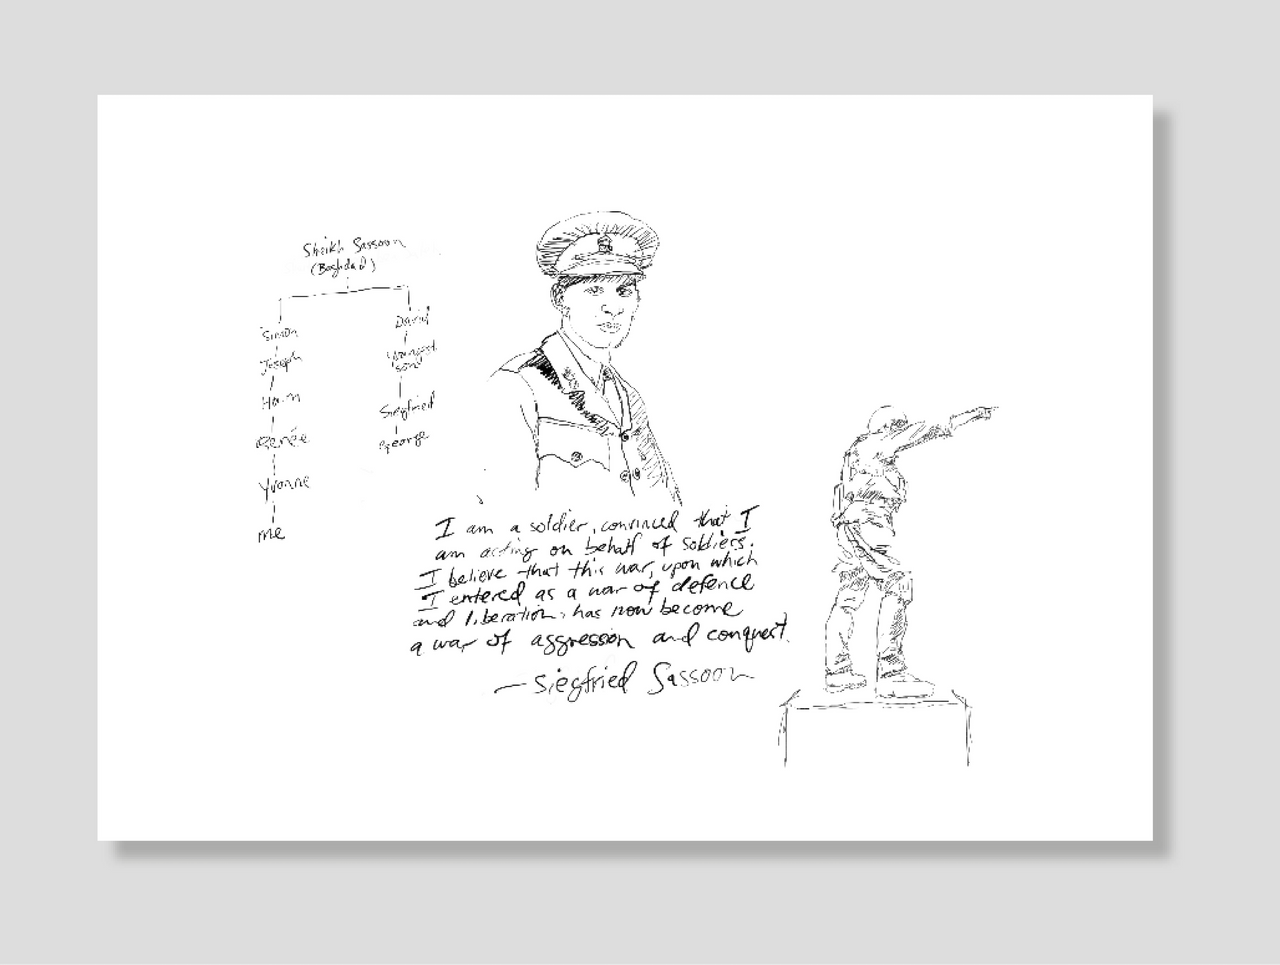 Sheikh Sassoon
(Baghdad)
Simon
Joseph
Haim
Renée
Yvonne
me
David
youngest
son
Siegfried
George
I am a soldier, convinced that I
am acting on behalf of soldiers.
I believe that this war, upon which
I entered as a war of defence
and liberation, has now become
a war of aggression and conquest.
— Siegfried Sassoon